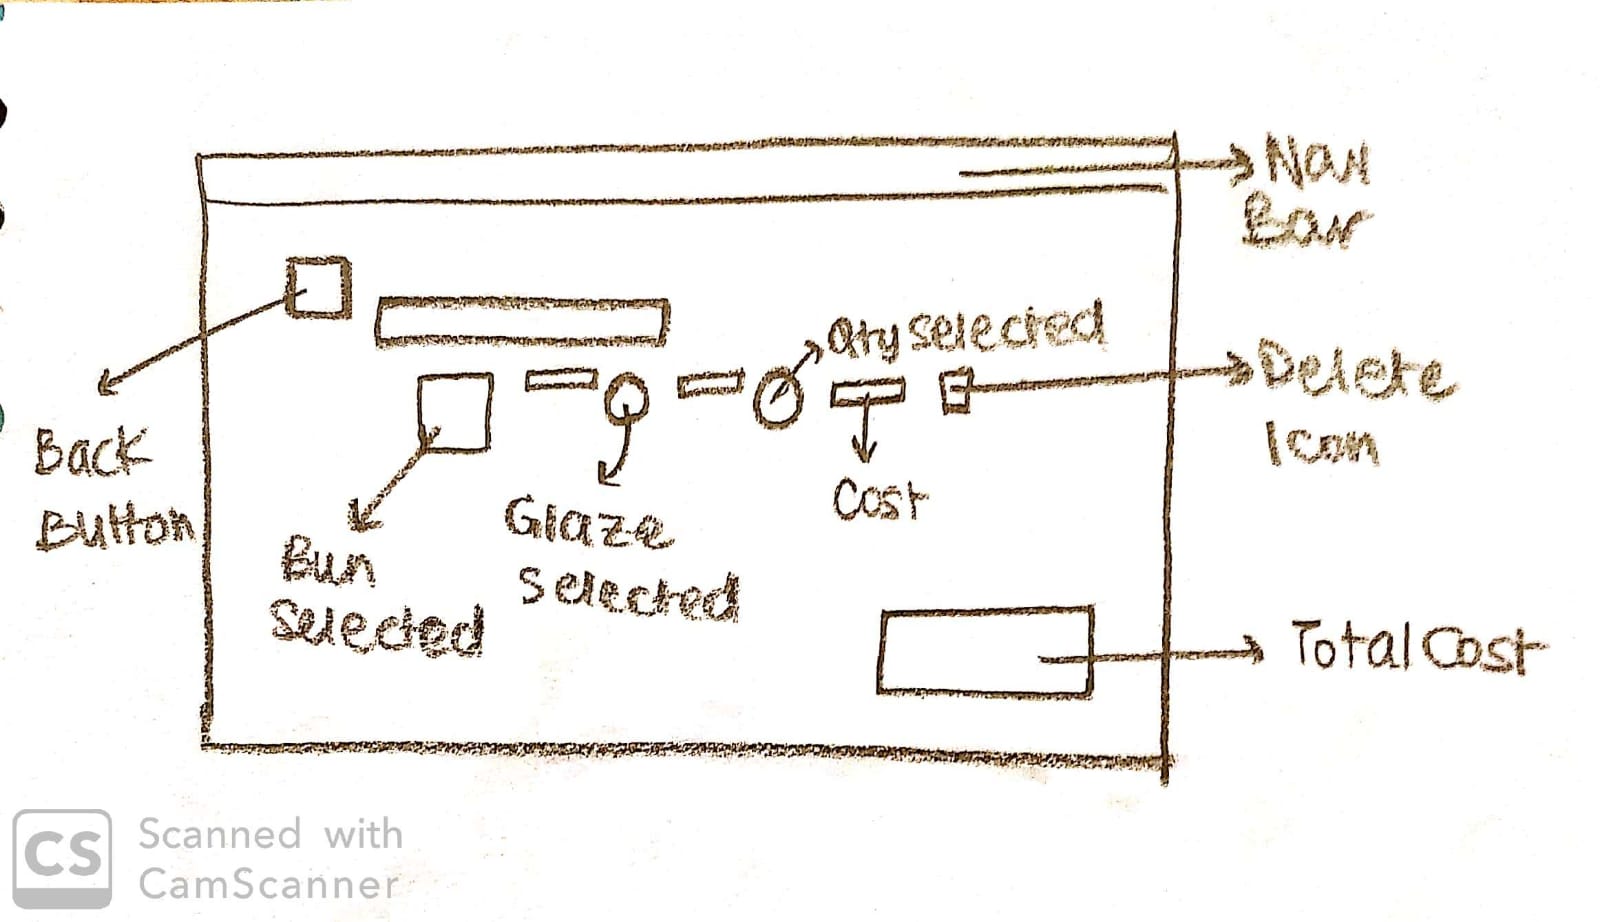 Nav
Bar
Qty selected
Delete
Icon
Back
Button
Cost
Glaze
Selected
Bun
Selected
Total Cost
CS
Scanned with
CamScanner